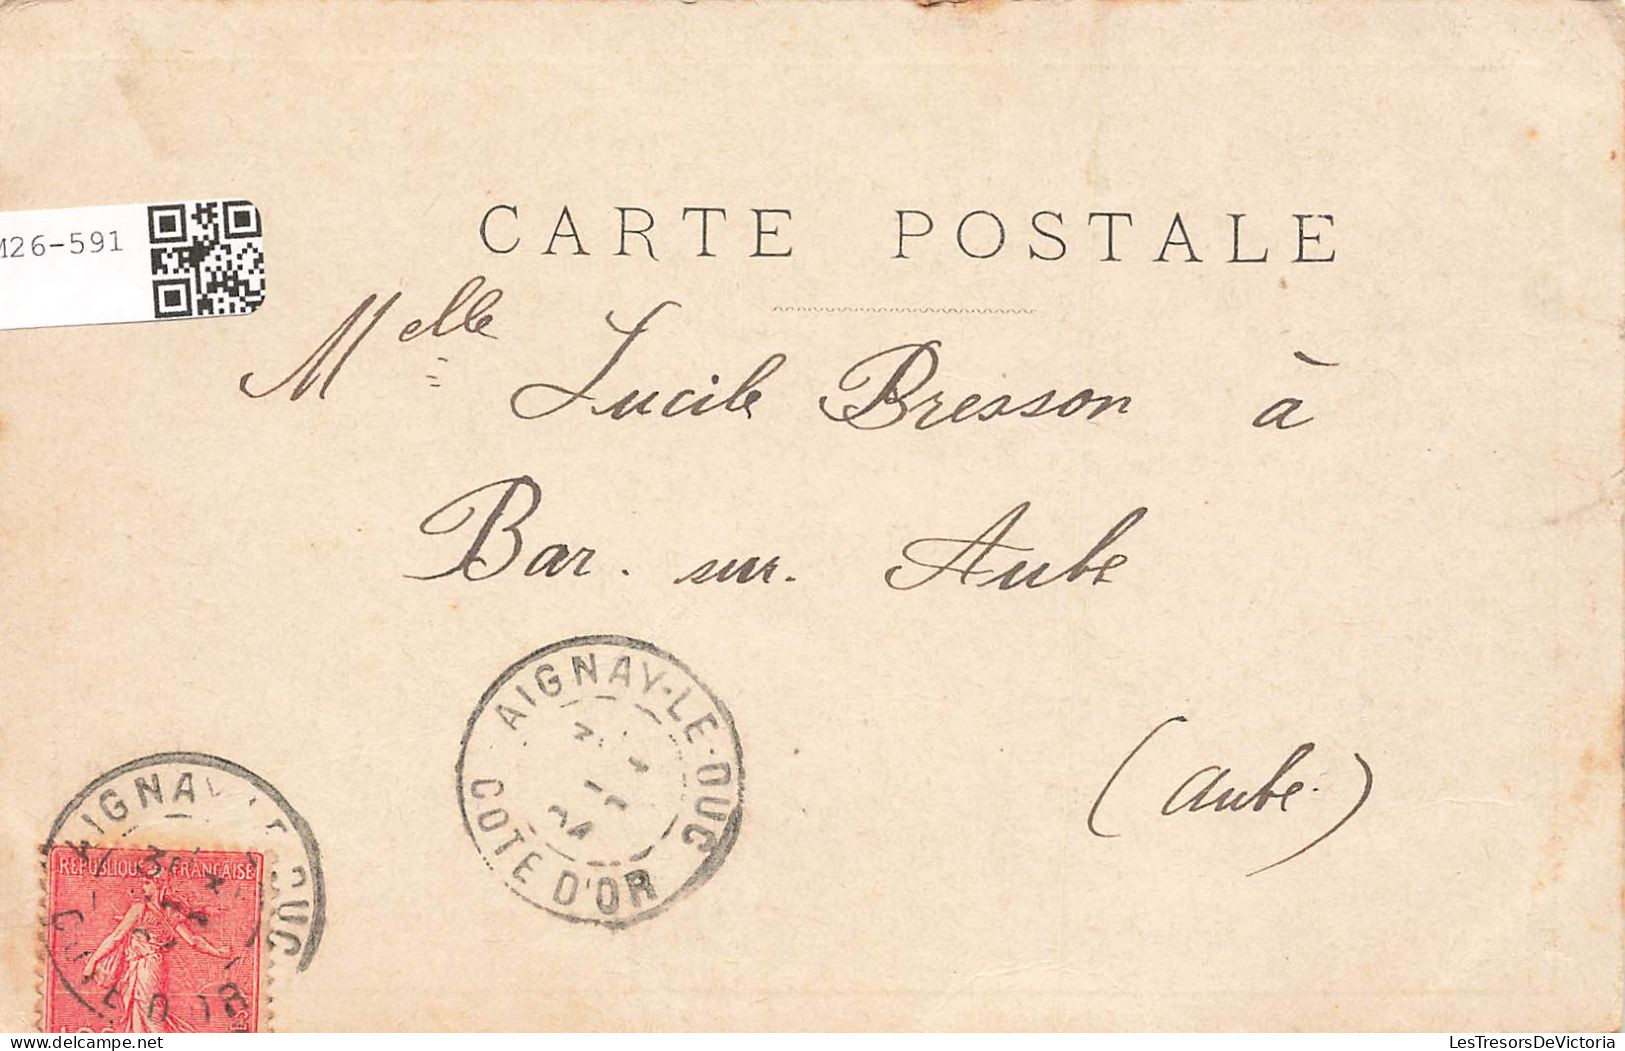 CARTE POSTALE
M26-591
Melle Lucile Bresson à
Bar. sur. Aube
(Aube.)
AIGNAY-LE-DUC
COTE D'OR
AIGNAY-LE-DUC
COTE D'OR
REPUBLIQUE FRANÇAISE
LesTresorsDeVictoria